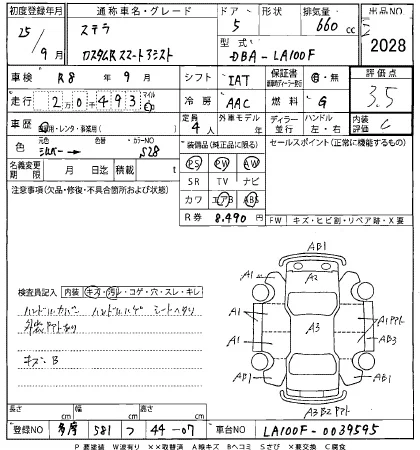 初度登録年月 通称車名・グレード ドア 形状 排気量 出品NO
25/9月 ステラ カスタムR スマートアシスト 5 660cc 2028
型式 DBA-LA100F
車検 R8年 9月 シフト IAT 保証書 有・無 評価点
走行 2万0千493 マイル 冷房 AAC 燃料 G 3.5
車歴 自家用・レンタ・事業用( ) 定員 4人 外車モデル 年 ディーラー 並行 ハンドル 左・右 内装評価 C
色 元色 シルバー 色替 カラーNO S28 *装備品(純正品に限る) セールスポイント(正常に機能するもの)
PS PW AW
名義変更期限 月 日迄 積載 t SR TV ナビ
注意事項(欠品・修復・不具合箇所および状態) カワ エアB ABS
R券 8,490円 FW キズ・ヒビ割・リペア跡・X要
検査員記入 内装 キズ・汚レ・コゲ・穴・スレ・キレ
ハンドルカバー ハンドルハゲ シートヘタリ
キズ・B
AB1
A1 A2 A1
A1 A3 A1
A1 AB3
AB1 AB1
長さ cm 幅 cm 高さ cm
登録NO 多摩 581 つ 44-07 車台NO LA100F-0039595
P 要塗装 W波有り ××取替済 A線キズ Bヘコミ Sさび ×要交換 C腐食